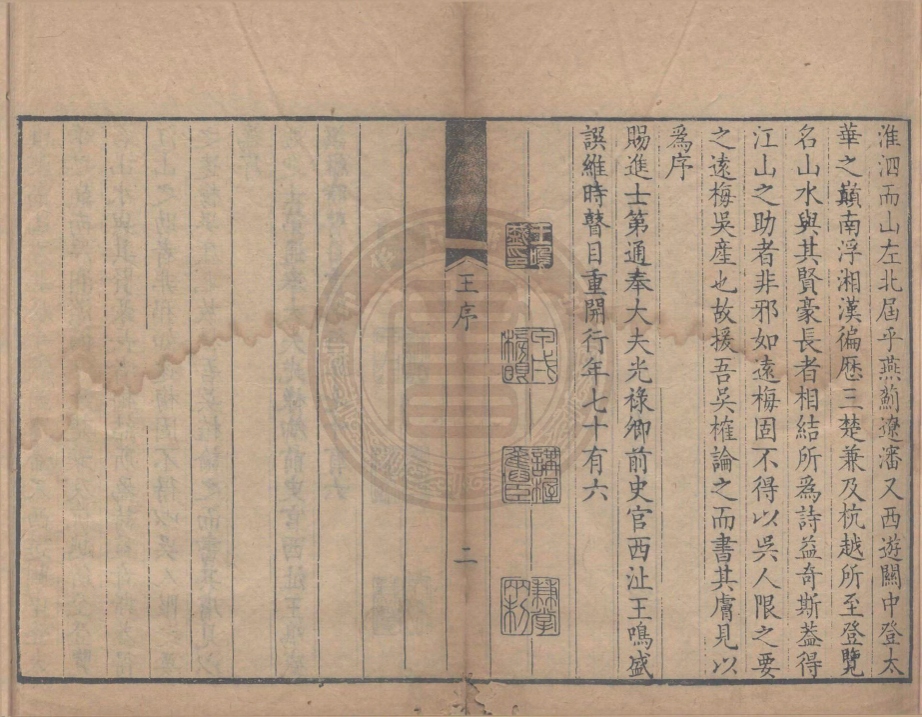 淮泗而山左北屆乎燕薊遼瀋又西遊關中登太
華之巔南浮湘漢徧歷三楚兼及杭越所至登覽
名山水與其賢豪長者相結所爲詩益奇斯葢得
江山之助者非邪如遠梅固不得以吳人限之要
之遠梅吳產也故援吾吳榷論之而書其膚見以
爲序
賜進士第通奉大夫光祿卿前史官西沚王鳴盛
譔維時瞽目重開行年七十有六
王鳴
盛印
甲戌
榜眼
講榷
舊臣
王序
二